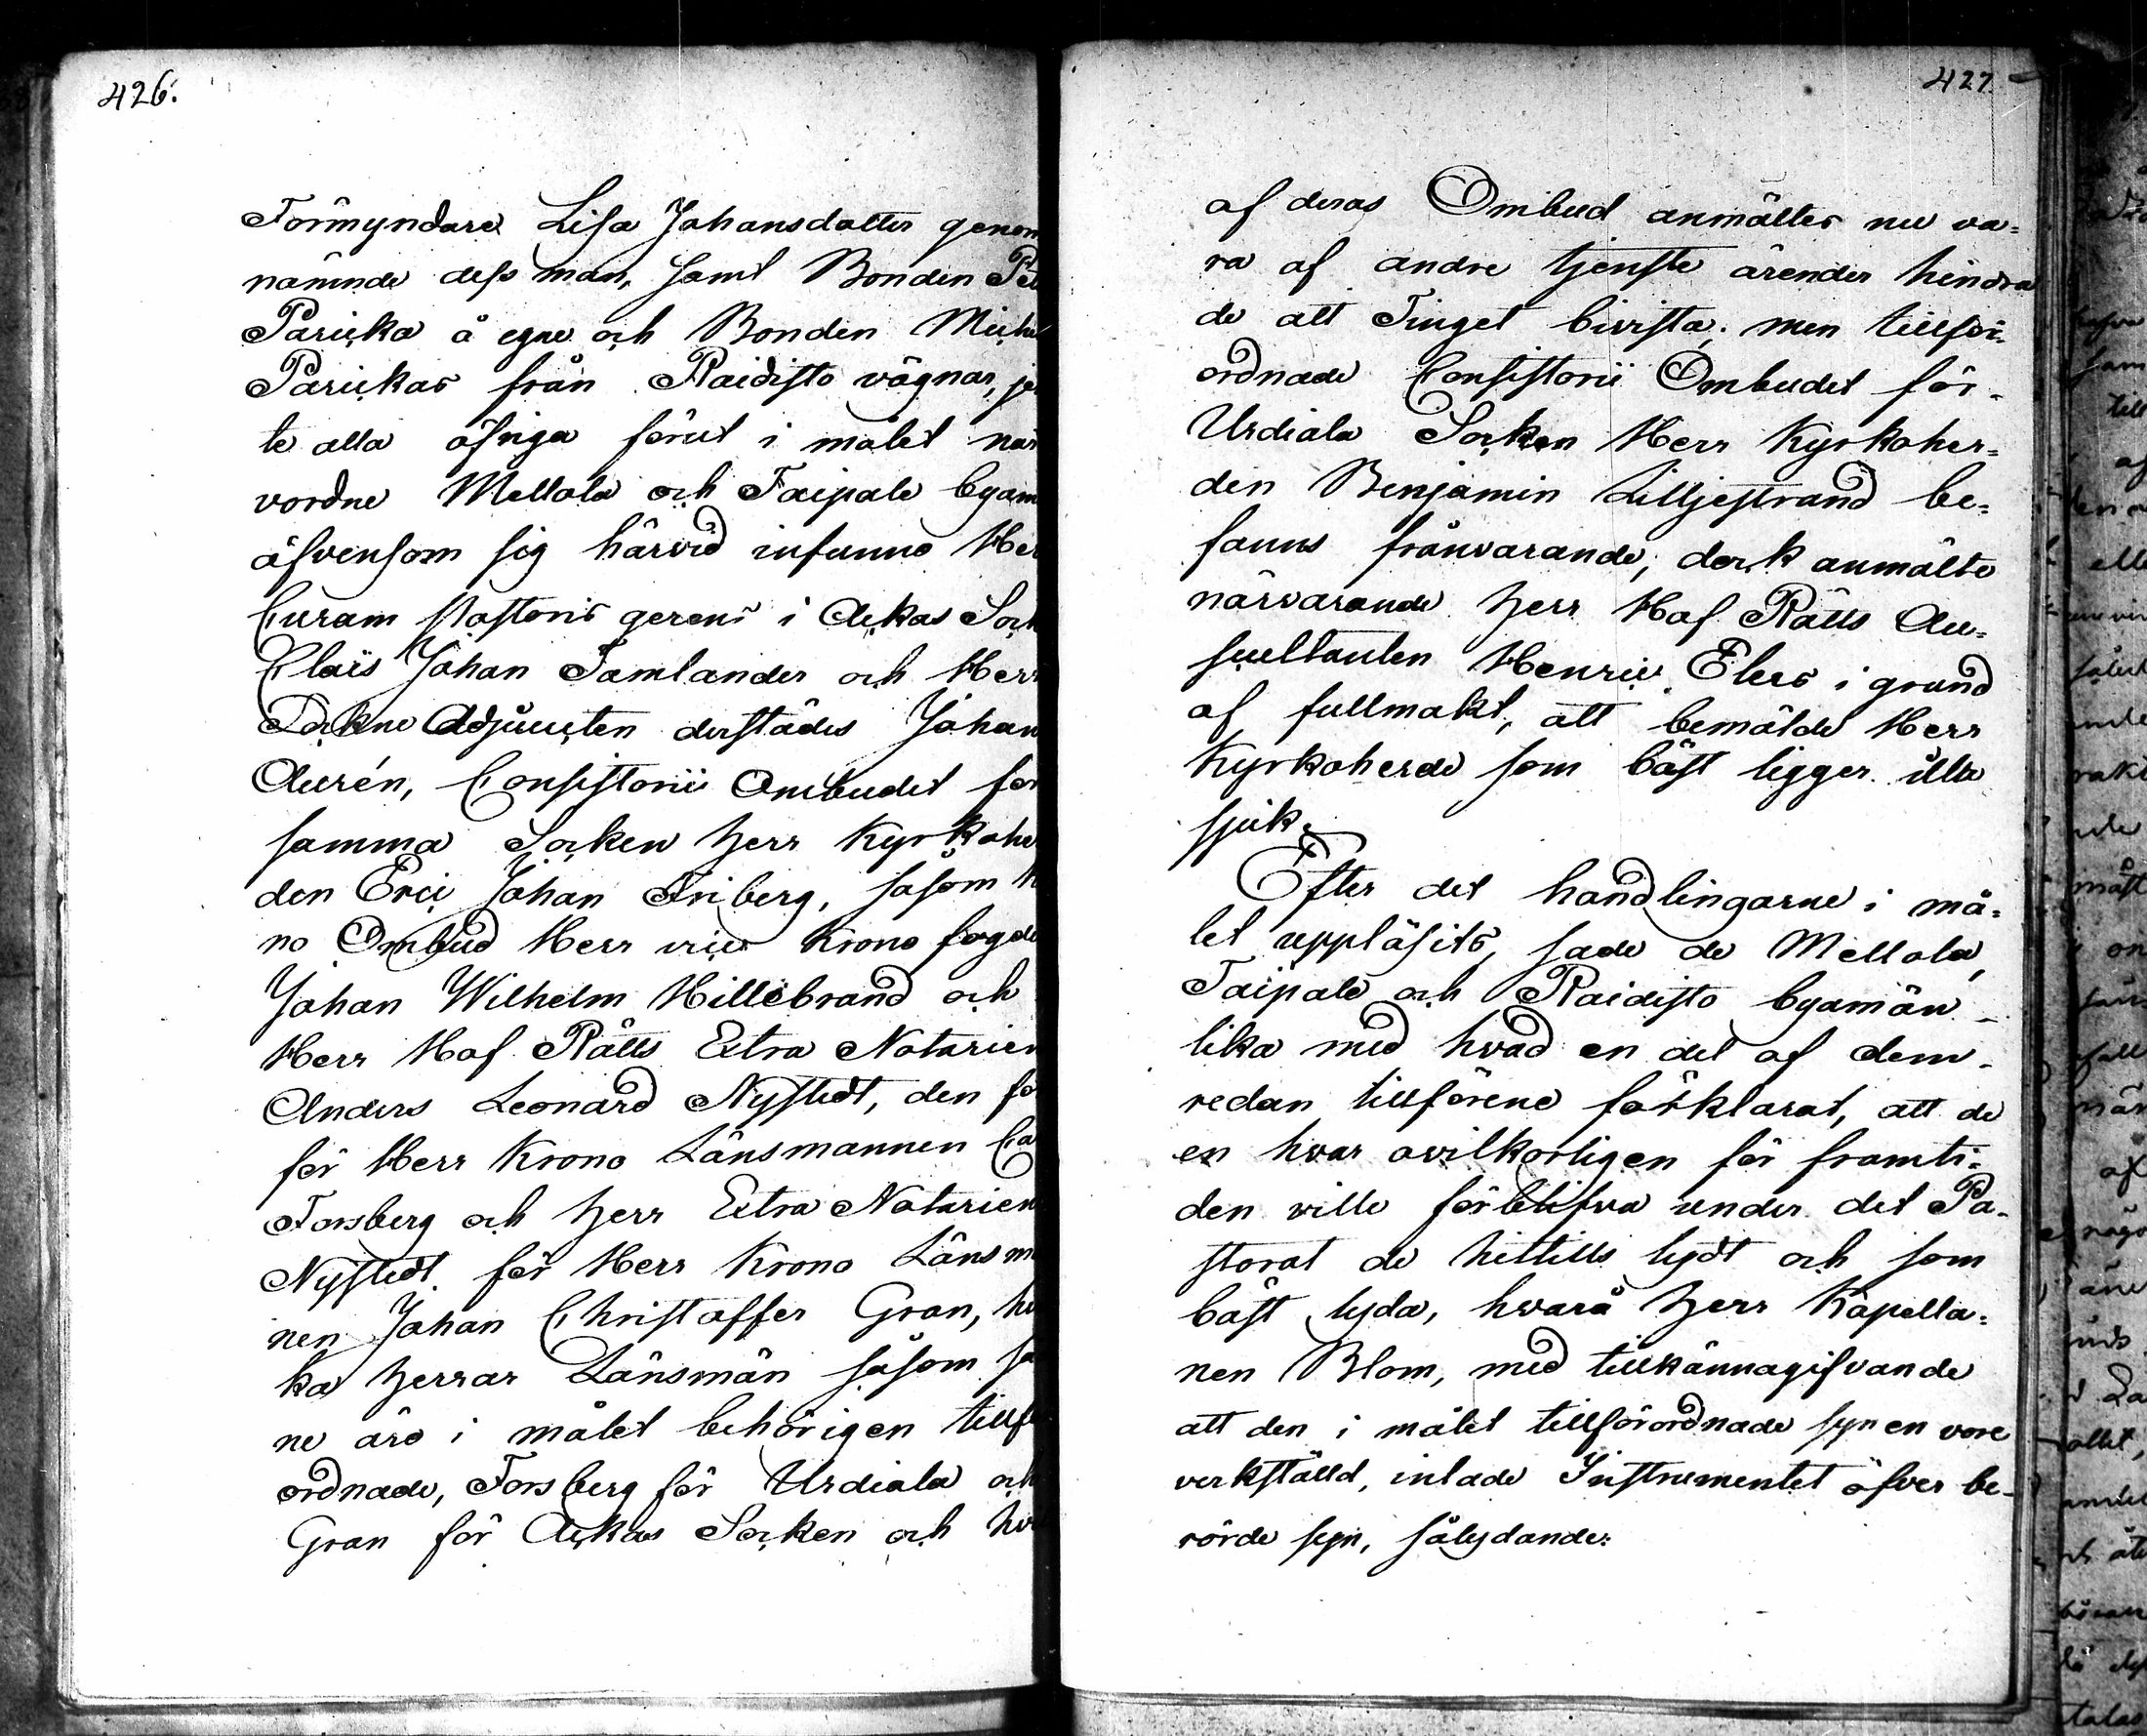 426.
Förmyndare Lisa Johansdotter genom
nämnde dess man, samt Bonden
Paricka å egne och Bonden Mich
Parickas från Raidisto vägnar, je
te alla öfriga förut i målet när
vordne Mellola och Taipale byam
äfvensom sig härvid infunno Her
Curam pastoris gerens i Ackas Sock
Claïs Johan Tamlander och Herr
Sockne Adjuncten derstädes Johan
Aurén, Consistorii Ombudet for
samma Socken Herr Kyrkoher
den Eric Johan Friberg, såsom
no Ombud Herr vice Krono fogde
Johan Wilhelm Hillebrand och
Herr Hof Rätts Extra Notarien
Anders Leonard Nystedt, den för
för Herr Krono Länsmannen Ca
Forsberg och Herr Extra Notarien
Nystedt för Herr Krono Länsm
nen Johan Christoffer Gran, hv
ka Herrar Länsmän såsom så
ne äro i målet behörigen tillf
ordnade, Forsberg för Urdiala och
Gran för Ackas Socken och hvil
427.
af deras Ombud anmältes nu va=
ra af andre tjenste ärender hindra
de att Tinget bivista; men tillför=
ordnade Consistorii Ombudet för
Urdiala Socken Herr Kyrkoher=
den Benjamin Lilljestrand be=
fanns frånvarande; dock anmälte
närvarande Herr Hof Rätts Au=
scultanten Henric Elers i grund
af fullmakt, att bemälde Herr
Kyrkoherde som bäst ligger illa
sjuk.
Efter det handlingarne i må=
let uppläsits, sade de Mellola,
Taipale och Raidisto byamän
lika med hvad en del af dem
redan tillförene förklarat, att de
en hvar ovilkorligen för framti=
den ville förblifva under det Pa=
storat de hittills lydt och som
bäst lyda, hvarå Herr Kapella=
nen Blom, med tillkännagifvande
att den i målet tillförordnade synen vore
verkställd, inlade Instrumentet öfver be=
rörde syn, sålydande: